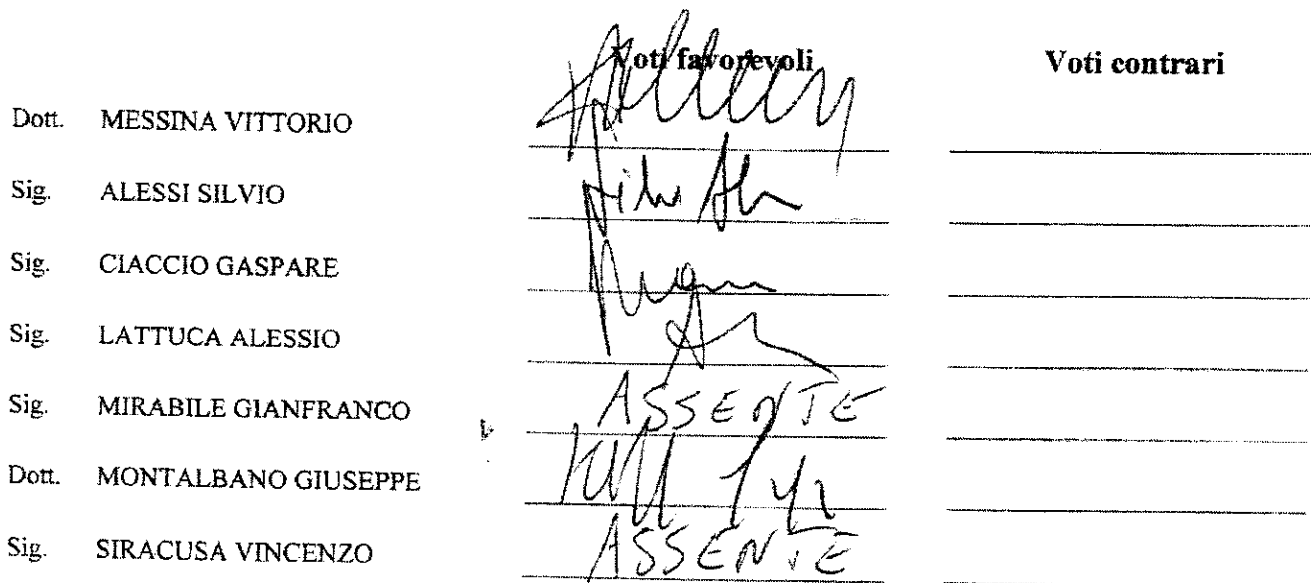 Voti favorevoli Voti contrari
Dott. MESSINA VITTORIO
Sig. ALESSI SILVIO
Sig. CIACCIO GASPARE
Sig. LATTUCA ALESSIO
Sig. MIRABILE GIANFRANCO ASSENTE
Dott. MONTALBANO GIUSEPPE
Sig. SIRACUSA VINCENZO ASSENTE